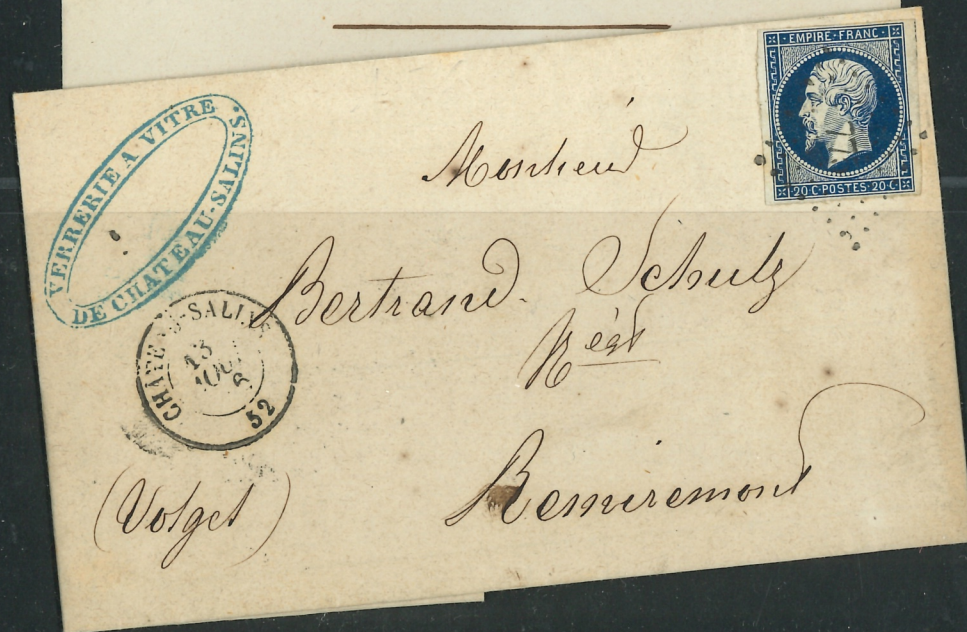 VERRERIE A VITRE
DE CHATEAU-SALINS
EMPIRE·FRANC·
20·C·POSTES·20·C·
Monsieur
Bertrand Schulz
Négt
CHATEAU-SALINS
13
AOUT
52
Remiremont
(Vosges)